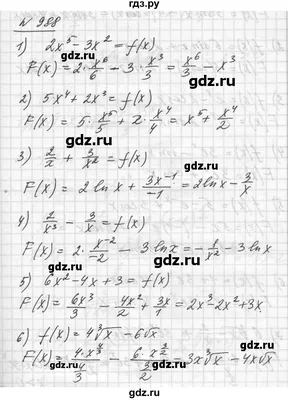 № 988
1) 2x⁵ - 3x² = f(x)
F(x) = 2·x⁶/6 - 3·x³/3 = x⁶/3 - x³
2) 5x⁴ + 2x³ = f(x)
F(x) = 5·x⁵/5 + 2·x⁴/4 = x⁵ + x⁴/2
3) 2/x + 3/x² = f(x)
F(x) = 2 ln x + 3x⁻¹/-1 = 2 ln x - 3/x
4) 2/x³ - 3/x = f(x)
F(x) = 2·x⁻²/-2 - 3 ln x = -1/x² - 3 ln x
5) 6x² - 4x + 3 = f(x)
F(x) = 6x³/3 - 4x²/2 + 3x/1 = 2x³ - 2x² + 3x
6) f(x) = 4∛x - 6√x
F(x) = 4·x^(4/3)/(4/3) - 6·x^(3/2)/(3/2) - 3x∛x - 4x√x